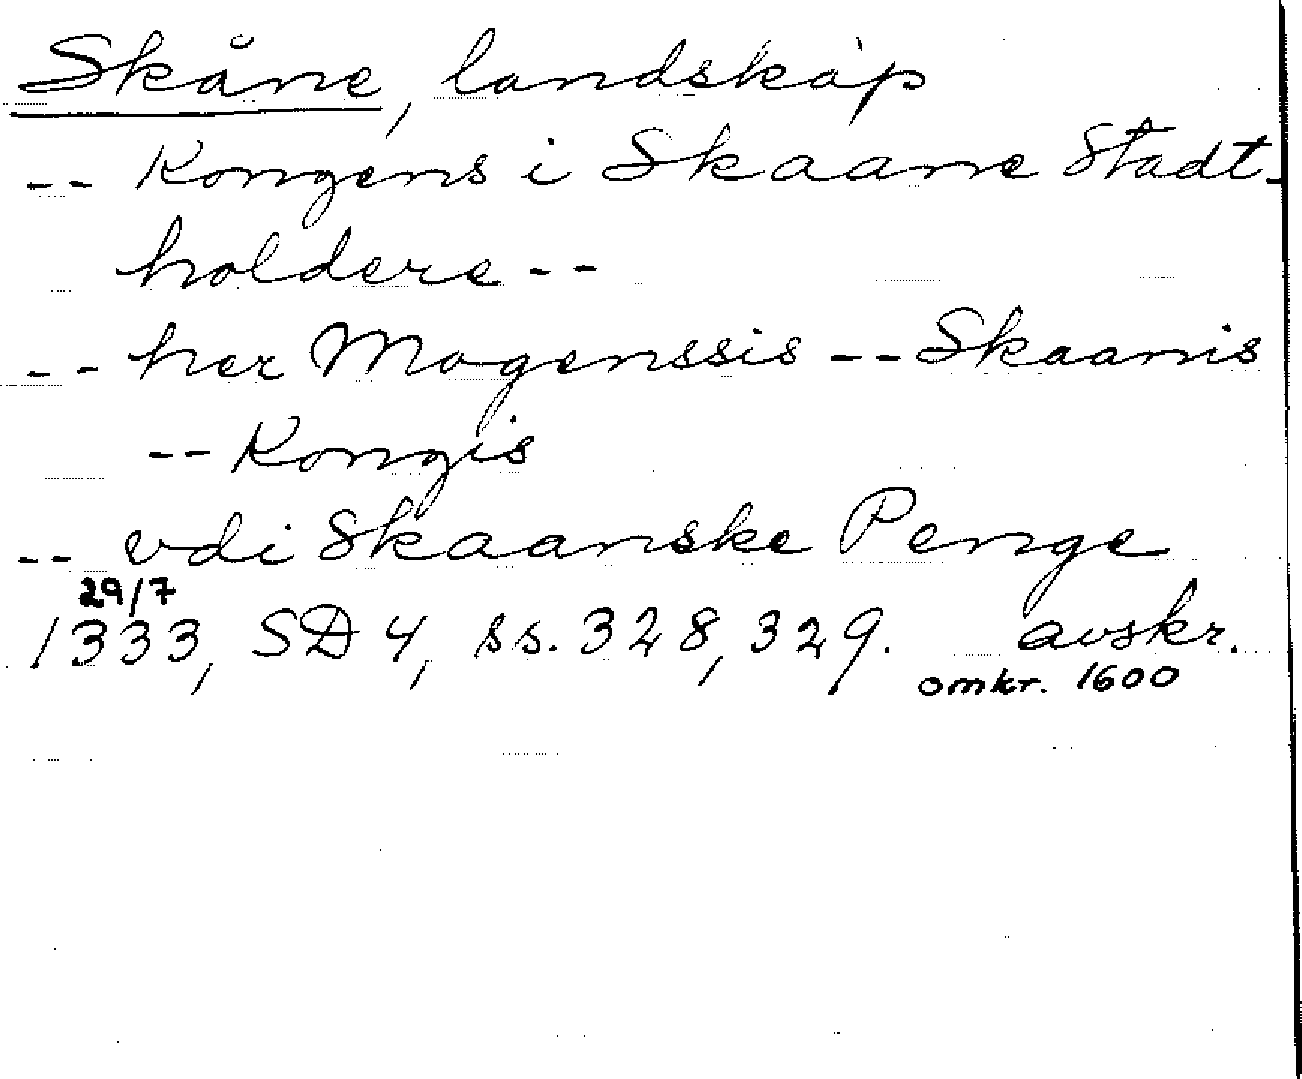 Skåne, landskap
-- Kongens i Skaane Stadt-
holdere --
-- her Mogenssis -- Skaanis
-- Kongis
-- vdi Skaanske Penge
29/7
1333, SD 4, ss. 328, 329. avskr.
omkr. 1600